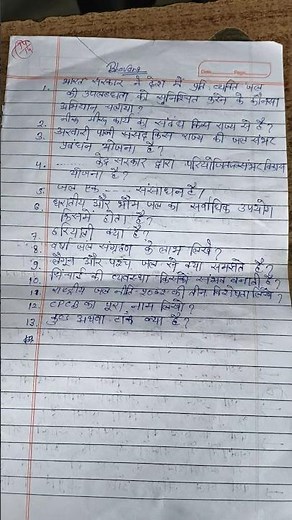 Date
1. भारत सरकार ने देश में प्रति व्यक्ति जल
की उपलब्धता को सुनिश्चित करने के कौनसा
अभियान चलाया?
2. नीरू मीरू कार्य का संबंध किस राज्य से है?
3. अरवारी पानी संसद किस राज्य की जल संभर
प्रबंधन योजना है?
4. केंद्र सरकार द्वारा परियोजित जलसंभर विकास
योजना है?
5. जल एक ------ संसाधन है?
6. धरातलीय और भौम जल का सर्वाधिक उपयोग
किसमें होता है?
7. हरियाली क्या है?
8. वर्षा जल संग्रहण के लाभ लिखें?
9. और जल से क्या समझते हैं?
10. सिंचाई की व्यवस्था किसको संभव बनाती है?
11. राष्ट्रीय जल नीति 2002 की तीन विशेषता लिखें?
12. का पूरा नाम लिखो?
13. कुंड अथवा टांके क्या है?